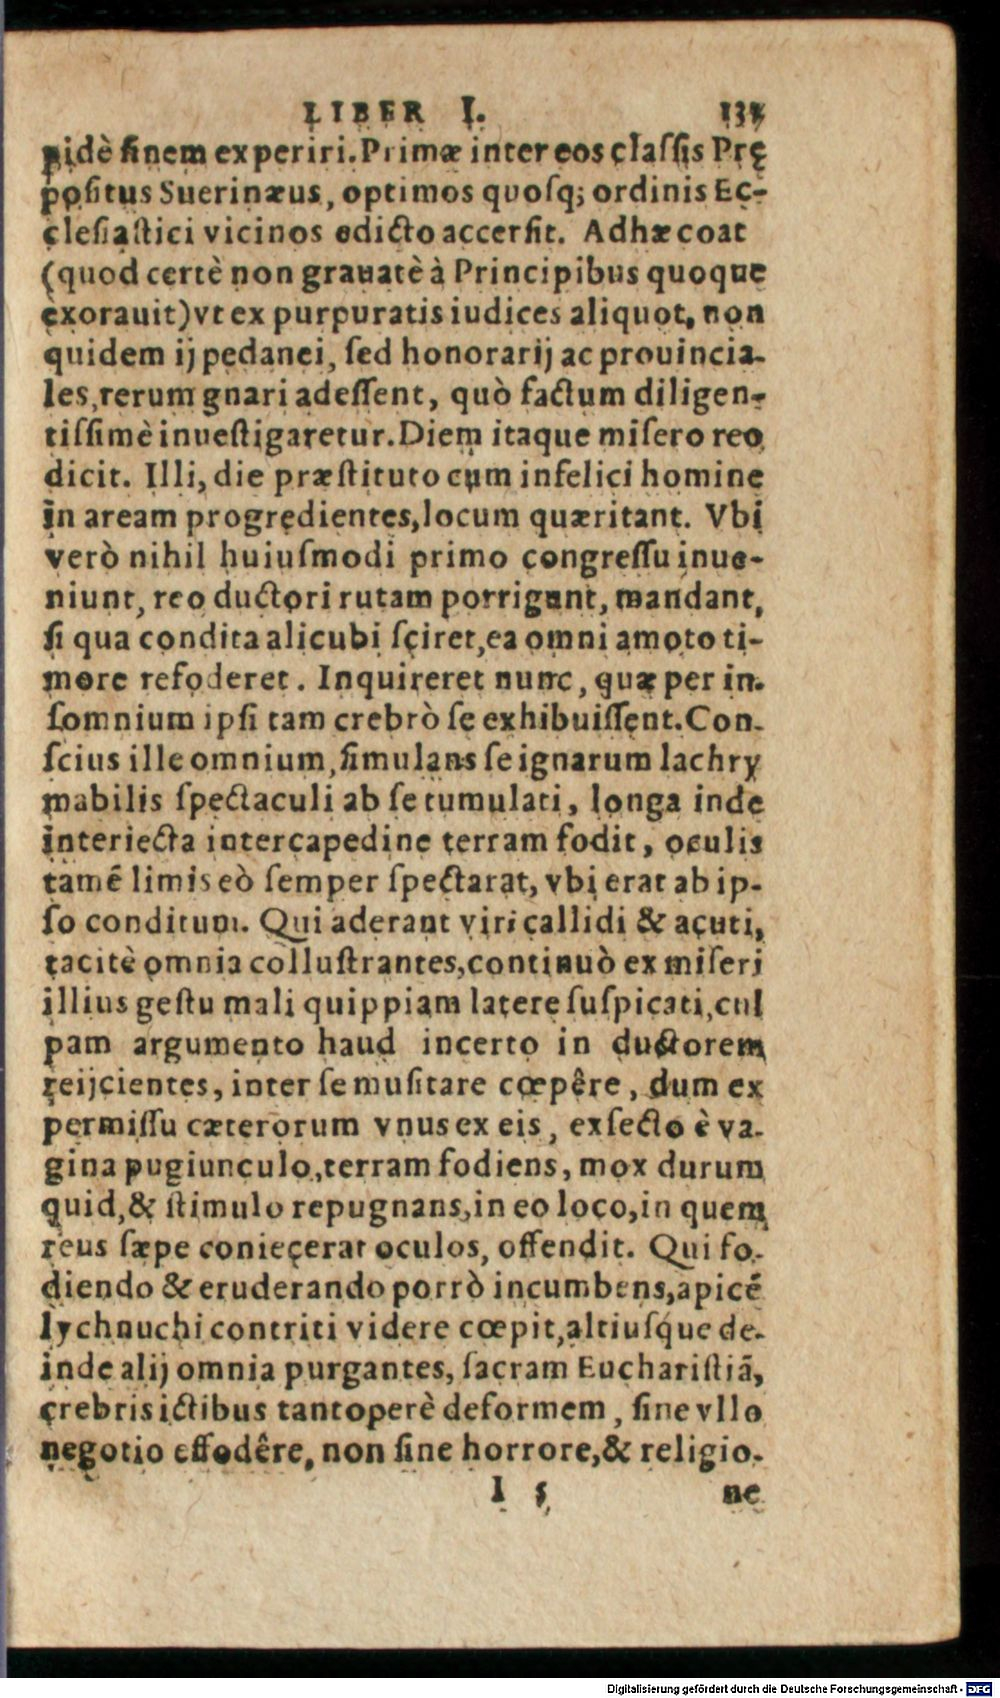 LIBER I. 137
pidè finem experiri. Primæ inter eos classis Prę
positus Suerinæus, optimos quosq; ordinis Ec-
clesiastici vicinos edicto accersit. Adhæc oat
(quod certè non grauatè à Principibus quoque
exorauit) vt ex purpuratis iudices aliquot, non
quidem ij pedanei, sed honorarij ac prouincia-
les, rerum gnari adessent, quò factum diligen-
tissimè inuestigaretur. Diem itaque misero reo
dicit. Illi, die præstituto cum infelici homine
in aream progredientes, locum quæritant. Vbi
verò nihil huiusmodi primo congressu inue-
niunt, reo ductori rutam porrigunt, mandant,
si qua condita alicubi sciret, ea omni amoto ti-
more refoderet. Inquireret nunc, quæ per in-
somnium ipsi tam crebrò se exhibuissent. Con-
scius ille omnium, simulans se ignarum lachry
mabilis spectaculi ab se tumulati, longa inde
interiecta intercapedine terram fodit, oculis
tamẽ limis eò semper spectarat, vbi erat ab ip-
so conditum. Qui aderant viri callidi & acuti,
tacitè omnia collustrantes, continuò ex miseri
illius gestu mali quippiam latere suspicati, cul
pam argumento haud incerto in ductorem
reijcientes, inter se musitare cœpêre, dum ex
permissu cæterorum vnus ex eis, exsecto è va-
gina pugiunculo, terram fodiens, mox durum
quid, & stimulo repugnans, in eo loco, in quem
reus sæpe coniecerat oculos, offendit. Qui fo-
diendo & eruderando porrò incumbens, apicẽ
lychnuchi contriti videre cœpit, altiusque de-
inde alij omnia purgantes, sacram Eucharistiã,
crebris ictibus tantoperè deformem, sine vllo
negotio effodêre, non sine horrore, & religio-
I 5 ne
Digitalisierung gefördert durch die Deutsche Forschungsgemeinschaft - DFG